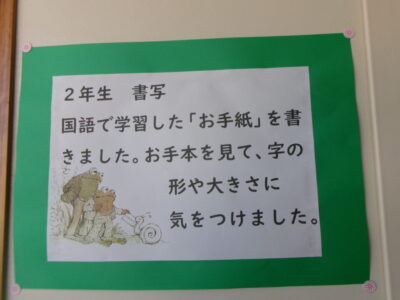 ２年生　書写
国語で学習した「お手紙」を書
きました。お手本を見て、字の
形や大きさに
気をつけました。